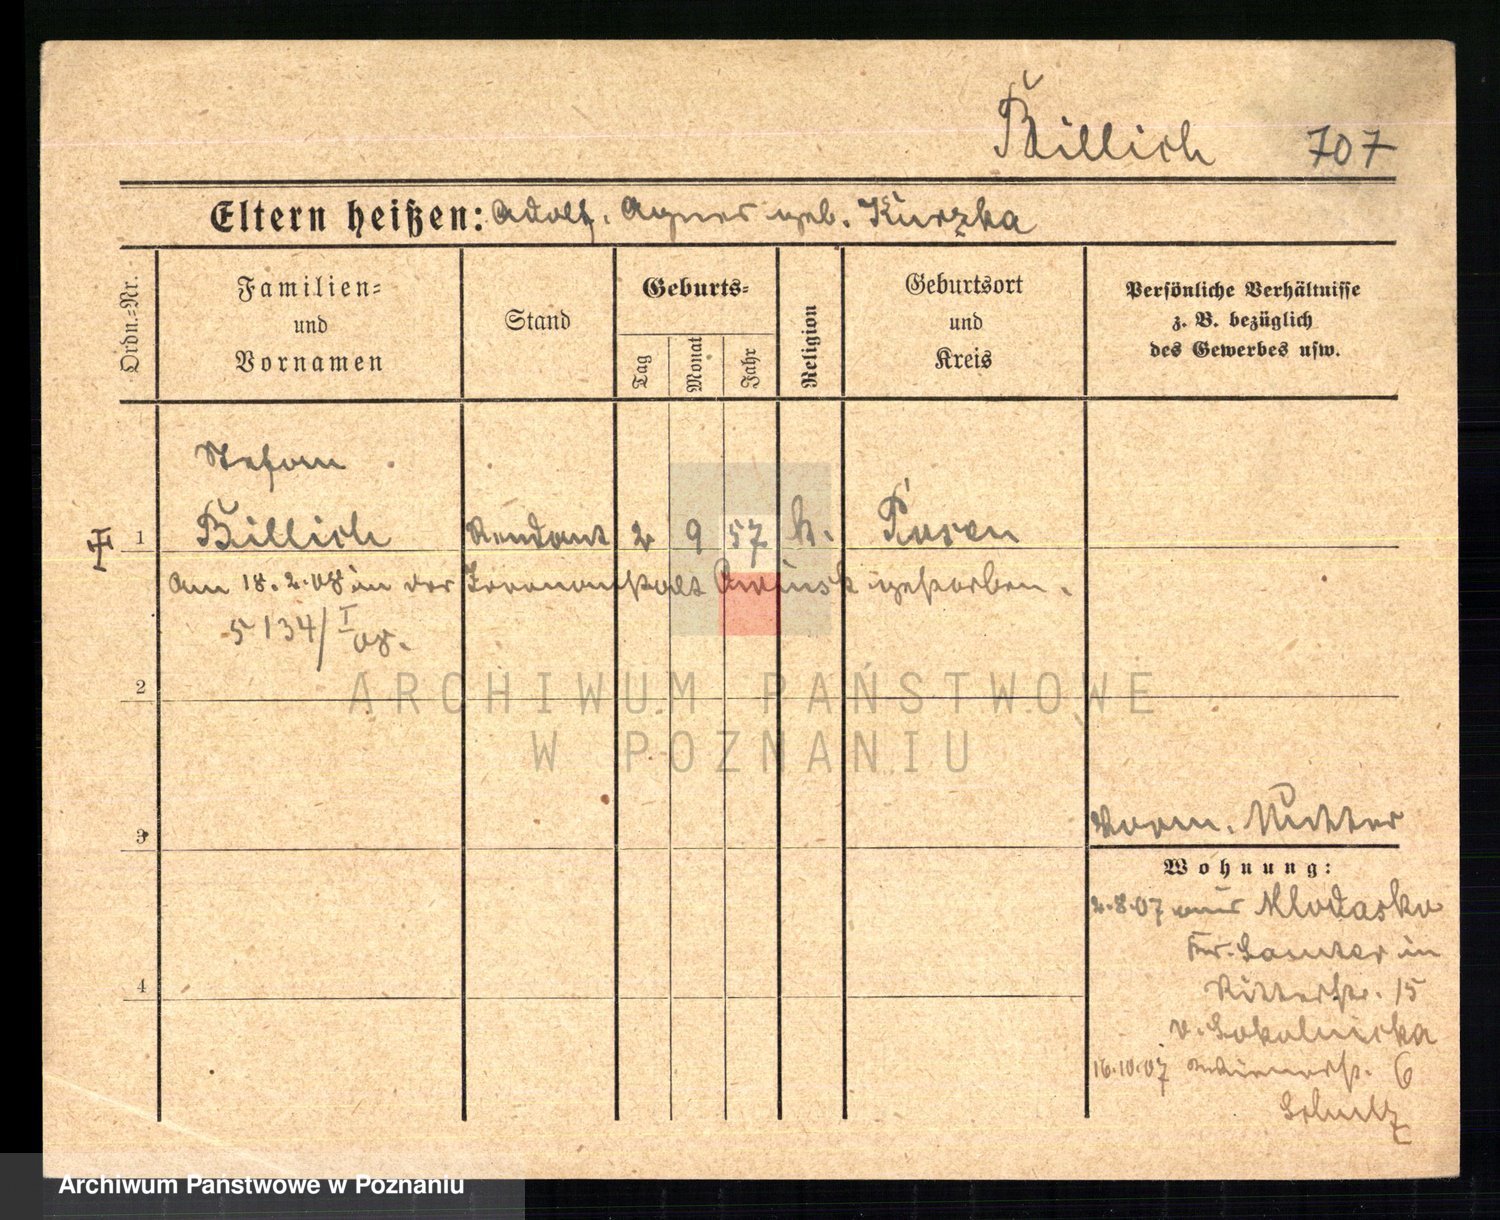 Billich 707
Eltern heißen: Adolf. Agnes geb. Kurzka
Ordn.-Nr.
Familien-
und
Vornamen
Stand
Geburts-
Tag
Monat
Jahr
Religion
Geburtsort
und
Kreis
Persönliche Verhältnisse
z. B. bezüglich
des Gewerbes usw.
Stefan
1 Billich Rendant 2 9 57 k. Posen
Am 18.2.08 in der Irrenanstalt Owinsk gestorben.
5134/I 08.
2
ARCHIWUM PAŃSTWOWE
W POZNANIU
3
Vorm. Mutter
Wohnung:
2.8.07 aus
Kr. Samter in
Ritterstr. 15
v. Sokolnicka
4
16.10.07 6
Schulz
Archiwum Państwowe w Poznaniu